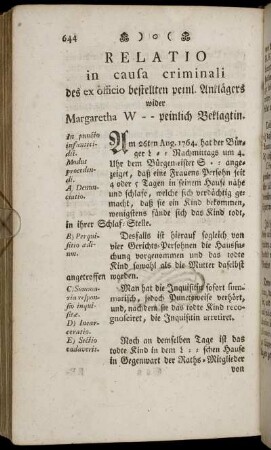 644
RELATIO
in causa criminali
des ex officio bestellten peinl. Anklägers
wider
Margaretha W - - peinlich Beklagtin.
In puncto
infanticidii.
Modus
Procedendi.
A) Denunciatio.
Am 26ten Aug. 1764. hat der Bürger
L : : Nachmittags um 4.
Uhr dem Bürgermeister S : : angezeiget,
daß eine Frauens-Persohn seit
4 oder 5 Tagen in seinem Hause nähe
und schlafe, welche sich verdächtig gemacht,
daß sie ein Kind bekommen,
wenigstens fände sich das Kind todt,
in ihrer Schlaf-Stelle.
B) Perquisitio
Deshalb ist hierauf sogleich von
vier Gerichts-Persohnen die Haussuchung
vorgenommen und das todte
Kind sowohl als die Mutter daselbst
angetroffen worden.
C) Summaria
inquisitæ.
Man hat die Inquisitin sofort summarisch,
jedoch Punctsweise verhört,
und, nachdem sie das todte Kind recognosciret,
die Inquisitin arretiret.
D) Incarceratio.
E) Sectio
cadaveris.
Noch an demselben Tage ist das
todte Kind in dem L : : schen Hause
in Gegenwart der Raths-Mitglieder
von